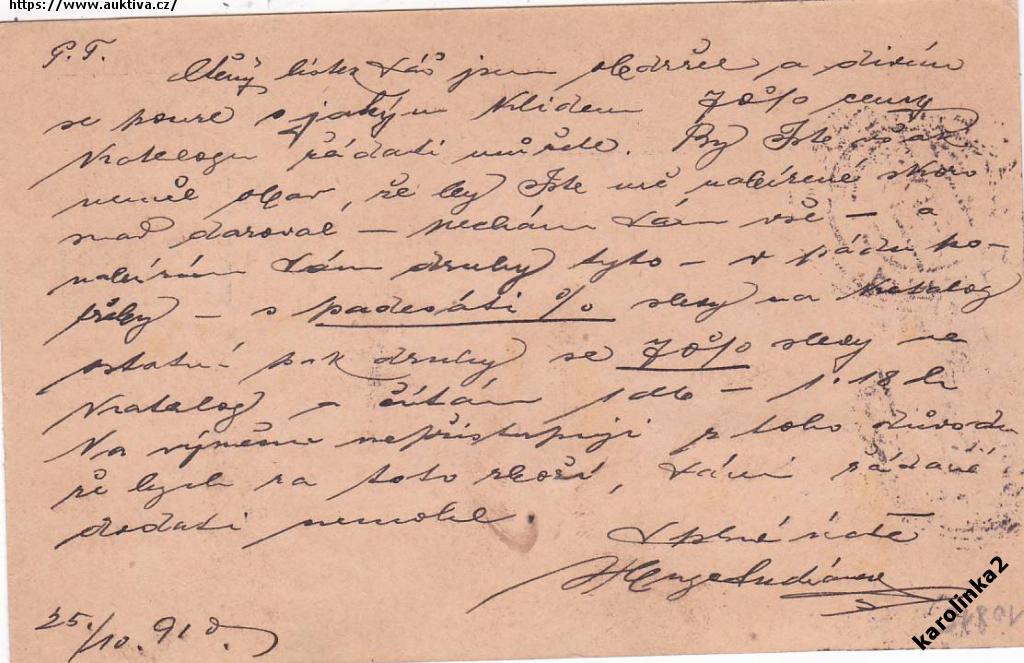 https://www.auktiva.cz/
P.T.
Ctěný lístek Váš jsem obdržel a divím
se pouze s jakým klidem 70% ceny
Katalogu žádati můžete. By Jste však
neměl obav, že by Jste mě nabízené skoro
snad daroval — nechám Vám vše — a
nabízím Vám druhy tyto — v pádu po-
třeby — s padesáti % slevy na Katalog
ostatní pak druhy se 70% slevy na
Katalog a čítám 1 — 1.18 h
Na výměnu nepřistupuji z toho důvodu
že bych za toto zboží, Vámi žádané
dodati nemohl.
V plné úctě
25./10. 910.
karolinka2